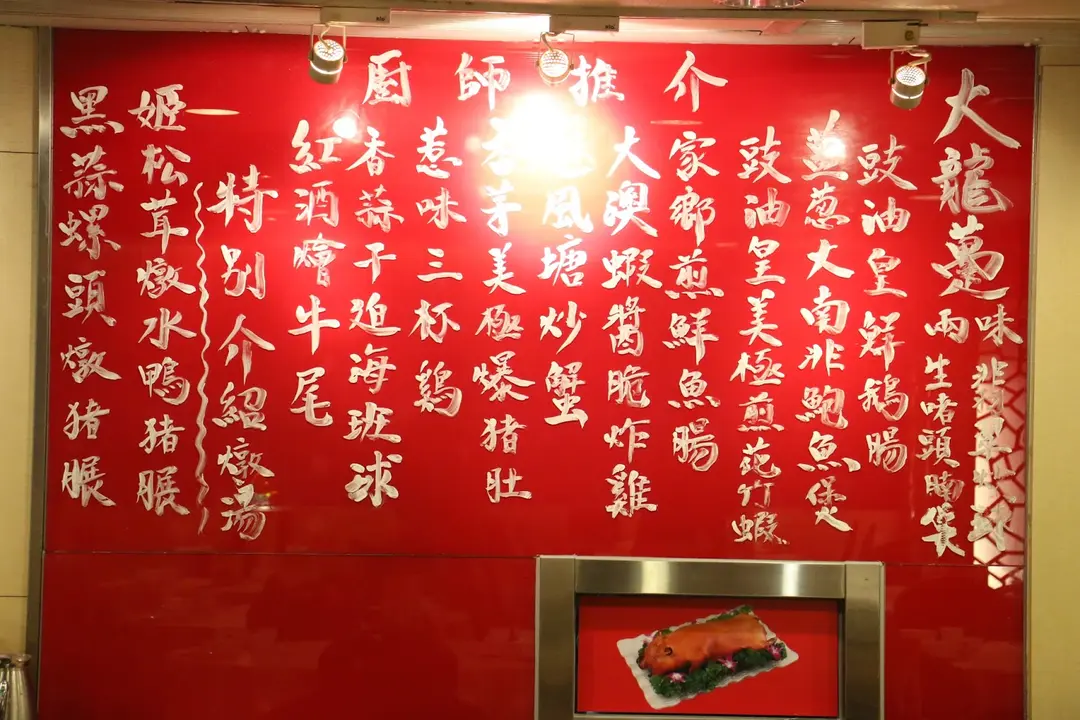 廚師推介
大龍躉
味
兩生啫頭腩煲
豉油皇鮮鵝腸
蔥大南非鮑魚煲
豉油皇美極煎花竹蝦
家鄉煎鮮魚腸
大澳蝦醬脆炸雞
風塘炒蟹
香茅美極爆猪肚
惹味三杯鷄
香蒜干迫海班球
紅酒燴牛尾
特別介紹燉湯
姬松茸燉水鴨猪𦟌
黑蒜螺頭燉猪𦟌